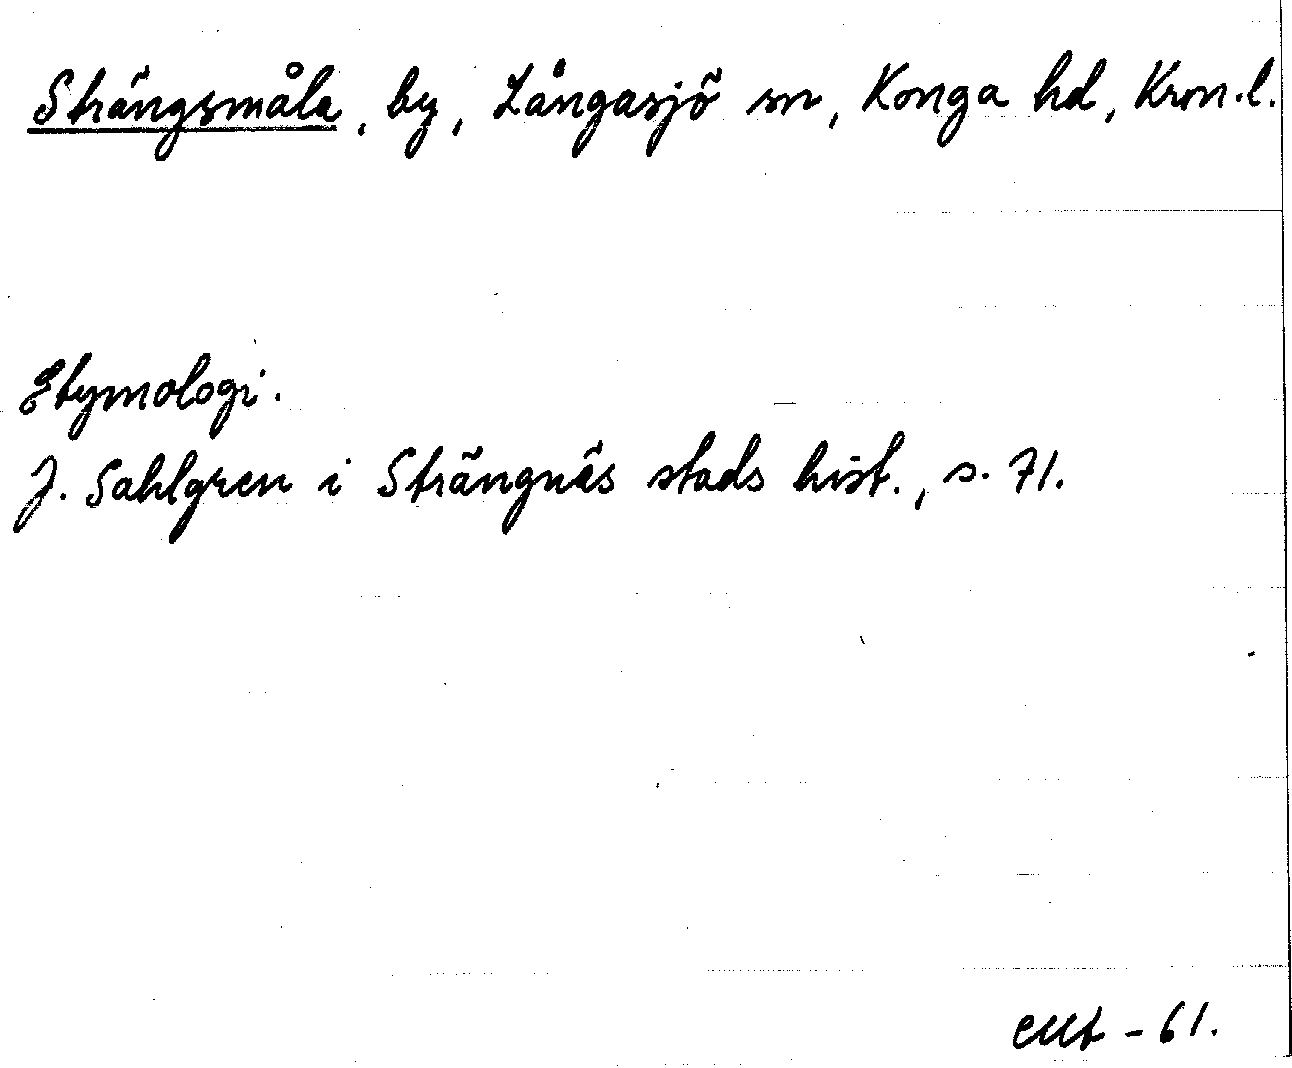 Strängsmåla, by, Långasjö sn, Konga hd, Kron.l.
Etymologi.
J. Sahlgren i Strängnäs stads hist., s. 71.
-61.